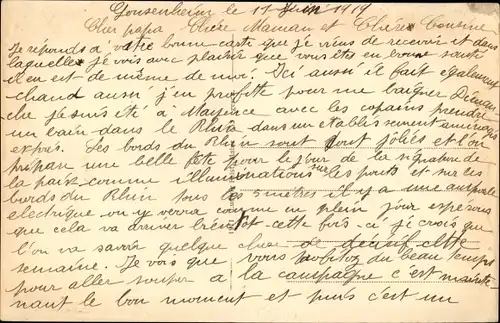 Gonsenheim le 11 Juin 1919
Cher papa Chère Maman et Chère Cousine
Je réponds a votre bonne carte que je viens de recevoir et dans
laquelle je vois avec plaisir que vous êtes en bonne santé
il en est de même de moi. Ici aussi il fait egalement
chaud aussi j'en profite pour me baigner Diman-
che je suis été a Mayence avec les copains prendre
un bain dans le Rhin dans un etablissement aménagé
exprés. Les bords du Rhin sont fort jolies et l'on
prépare une belle fête pour le jour de la signature de
la paix comme illuminations sur les ponts et sur les
bords du Rhin tous les 5 mètres il y a une ampoule
electrique on y verra comme en plein jour espérons
que cela va arriver bientôt cette fois-ci je crois que
l'on va savoir quelque chose de décisif cette
semaine. Je vois que vous profitez du beau temps
pour aller souper a la campagne c'est mainte-
nant le bon moment et puis c'est un